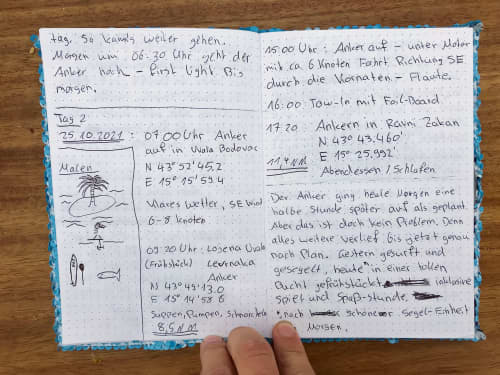 tag. So kann's weiter gehen.
Morgen um 06:30 Uhr geht der
Anker hoch - first light. Bis
morgen.
Tag 2
25.10.2021:
Malen
07:00 Uhr Anker
auf in Uvala Bodovac
N 43° 52' 45.2
E 15° 15' 53.4
Klares Wetter, SE Wind
6-8 knoten
09:20 Uhr: Lojena Uvala
(Frühstück) Levrnaka
Anker
N 43° 49' 13.0
E 15° 14' 53.6
Suppen, Pumpen, Schnorcheln
8,5 NM
15:00 Uhr: Anker auf - unter Motor
mit ca. 6 Knoten Fahrt Richtung SE
durch die Kornaten - Flaute.
16:00 Tow-In mit Foil-Board
17:20: Ankern in Ravni Zakan
N 43° 43.460'
E 15° 25.992'
11,4 NM
Abendessen / Schlafen
Der Anker ging heute Morgen eine
halbe Stunde später auf als geplant.
Aber das ist doch kein Problem. Denn
alles weitere verlief bis jetzt genau
nach Plan. Gestern gesurft und
gesegelt, heute in einer tollen
Bucht gefrühstückt inklusive
Spiel und Spaß-Stunde,
nach schöner Segel-Einheit
Morgen.